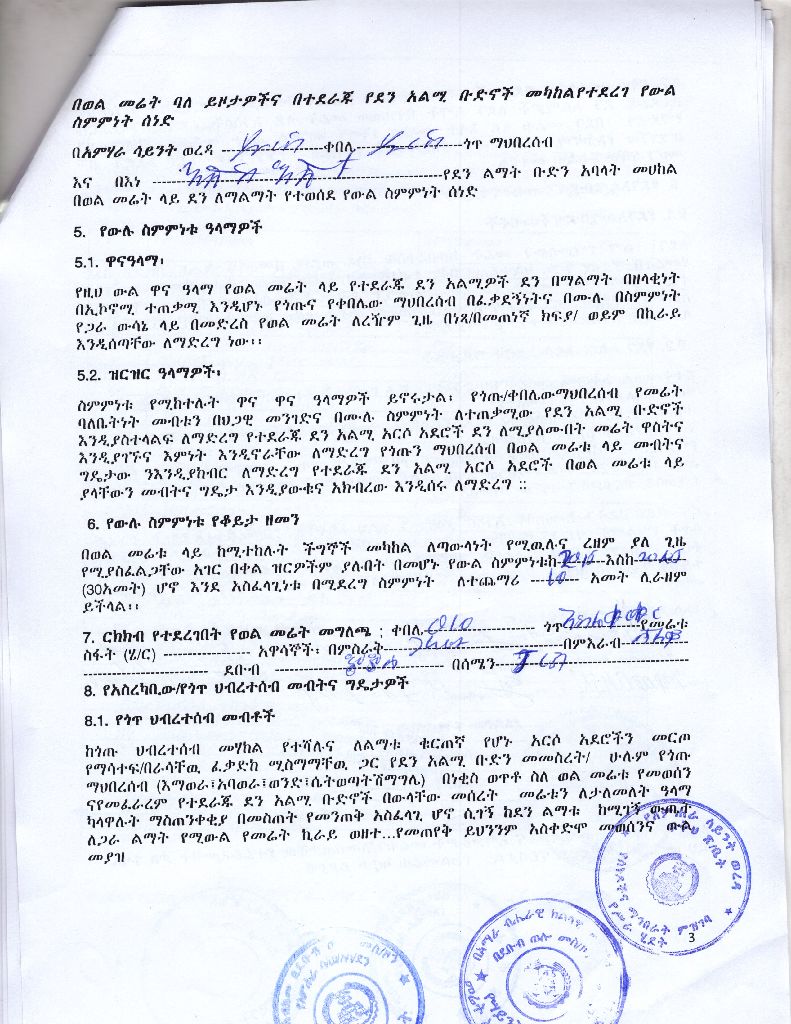 በወል መሬት ባለ ይዞታዎችና በተደራጁ የደን አልሚ ቡድኖች መካከልየተደረገ የውል
ስምምነት ሰነድ
በአምሃራ ሳይንት ወረዳ ------------ቀበሌ------------ጎጥ ማህበረሰብ
እና በእነ ------------------------------የደን ልማት ቡድን አባላት መሀከል
በወል መሬት ላይ ደን ለማልማት የተወሰደ የውል ስምምነት ሰነድ
5. የውሉ ስምምነቱ ዓላማዎች
5.1. ዋናዓላማ፡
የዚህ ውል ዋና ዓላማ የወል መሬት ላይ የተደራጁ ደን አልሚዎች ደን በማልማት በዘላቂነት
በኢኮኖሚ ተጠቃሚ እንዲሆኑ የጎጡና የቀበሌው ማህበረሰብ በፈቃደኝነትና በሙሉ በስምምነት
የጋራ ውሳኔ ላይ በመድረስ የወል መሬት ለረዥም ጊዜ በነጻ/በመጠነኛ ክፍያ/ ወይም በኪራይ
እንዲሰጣቸው ለማድረግ ነው፡፡
5.2. ዝርዝር ዓላማዎች፡
ስምምነቱ የሚከተሉት ዋና ዋና ዓላማዎች ይኖሩታል፡ የጎጡ/ቀበሌውማህበረሰብ የመሬት
ባለቤትነት መብቱን በህጋዊ መንገድና በሙሉ ስምምነት ለተጠቃሚው የደን አልሚ ቡድኖች
እንዲያስተላልፍ ለማድረግ የተደራጁ ደን አልሚ አርሶ አደሮች ደን ለሚያለሙበት መሬት ዋስትና
እንዲያገኙና እምነት እንዲኖራቸው ለማድረግ የጎጡን ማህበረሰብ በወል መሬቱ ላይ መብትና
ግዴታው ንእንዲያከብር ለማድረግ የተደራጁ ደን አልሚ አርሶ አደሮች በወል መሬቱ ላይ
ያላቸውን መብትና ግዴታ እንዲያውቁና አክብረው እንዲሰሩ ለማድረግ ::
6. የውሉ ስምምነቱ የቆይታ ዘመን
በወል መሬቱ ላይ ከሚተከሉት ችግኞች መካከል ለጣውላነት የሚዉሉና ረዘም ያለ ጊዜ
የሚያስፈልጋቸው አገር በቀል ዝርያዎችም ያሉበት በመሆኑ የውል ስምምነቱከ------እስከ------
(30አመት) ሆኖ እንደ አስፈላጊነቱ በሚደረግ ስምምነት ለተጨማሪ ---10--- አመት ሊራዘም
ይችላል፡፡
7. ርክክብ የተደረገበት የወል መሬት መግለጫ ; ቀበሌ 010 ------------ ጎጥ ------------የመሬቱ
ስፋት (ሄ/ር) ------------ አዋሳኞች፡ በምስራት------------------በምእራብ------
------------------ ደቡብ ------------------ በሰሜን------------------
8. የአስረካቢው/የጎጥ ህብረተሰብ መብትና ግዴታዎች
8.1. የጎጥ ህብረተሰብ መብቶች
ከጎጡ ህብረተሰብ መሃከል የተሻሉና ለልማቱ ቁርጠኛ የሆኑ አርሶ አደሮችን መርጦ
የማሳተፍ/በራሳቸዉ ፈቃድከ ሚስማማቸዉ ጋር የደን አልሚ ቡድን መመስረት/ ሁሉም የጎጡ
ማህበረሰብ (እማወራ፣አባወራ፣ወንድ፣ሴትወጣትሽማግሌ) በነቂስ ወጥቶ ስለ ወል መሬቱ የመወሰን
ናየመፈራረም የተደራጁ ደን አልሚ ቡድኖች በውላቸው መሰረት መሬቱን ለታለመለት ዓላማ
ካላዋሉት ማስጠንቀቂያ በመስጠት የመንጠቅ አስፈላጊ ሆኖ ሲገኝ ከደን ልማቱ ከሚገኝ ውጤት
ለጋራ ልማት የሚውል የመሬት ኪራይ ወዘተ...የመጠየቅ ይህንንም አስቀድሞ መወሰንና ውል
መያዝ
3